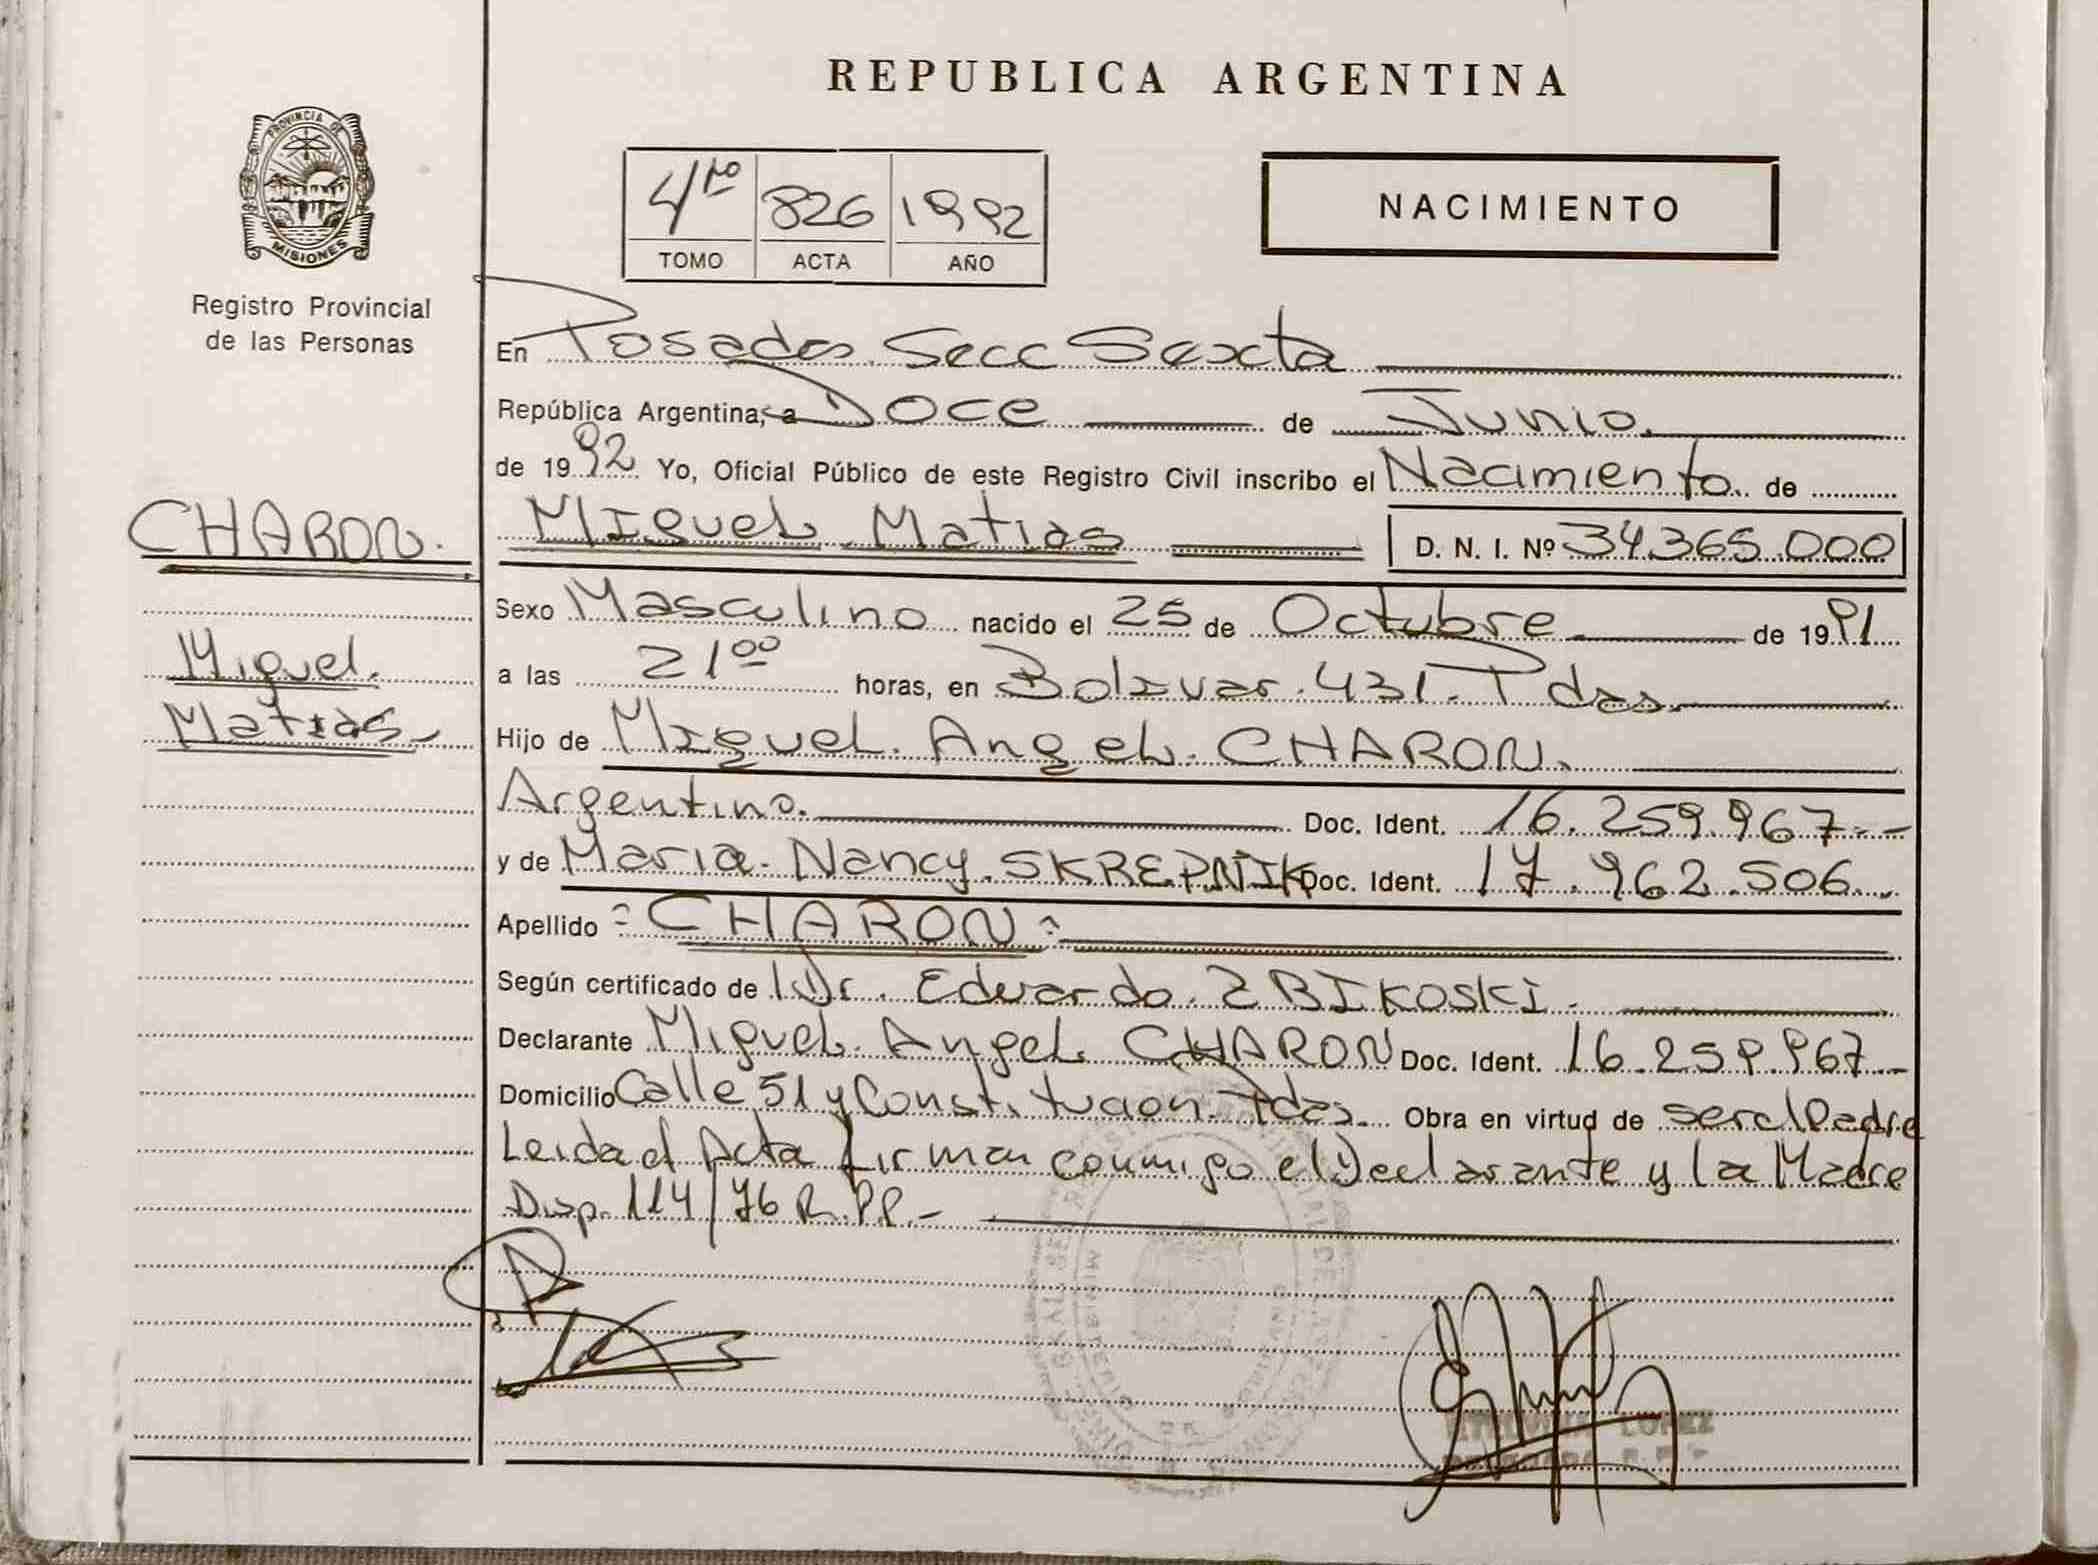 REPUBLICA ARGENTINA
PROVINCIA DE
MISIONES
Registro Provincial
de las Personas
4to 826 1992
TOMO ACTA AÑO
NACIMIENTO
En Posadas Secc Sexta
República Argentina, a Doce de Junio.
de 1992 Yo, Oficial Público de este Registro Civil inscribo el Nacimiento de
CHARON.
Miguel Matias D. N. I. Nº 34.365.000
Sexo Masculino nacido el 25 de Octubre de 1991
Miguel
Matias
a las 21 00 horas, en Bolivar 431 Pdas.
Hijo de Miguel Angel CHARON.
Argentino. Doc. Ident. 16.259.967
y de Maria Nancy SKREPNIK Doc. Ident. 17.962.506
Apellido CHARON
Según certificado de Dr. Eduardo ZBIKOSKI.
Declarante Miguel Angel CHARON Doc. Ident. 16.259.967
Domicilio Calle 51 y Constitucion Pdas. Obra en virtud de ser el Padre
Leida el Acta firman conmigo el Declarante y la Madre
Disp. 114/76 R.P.P.-
LOPEZ